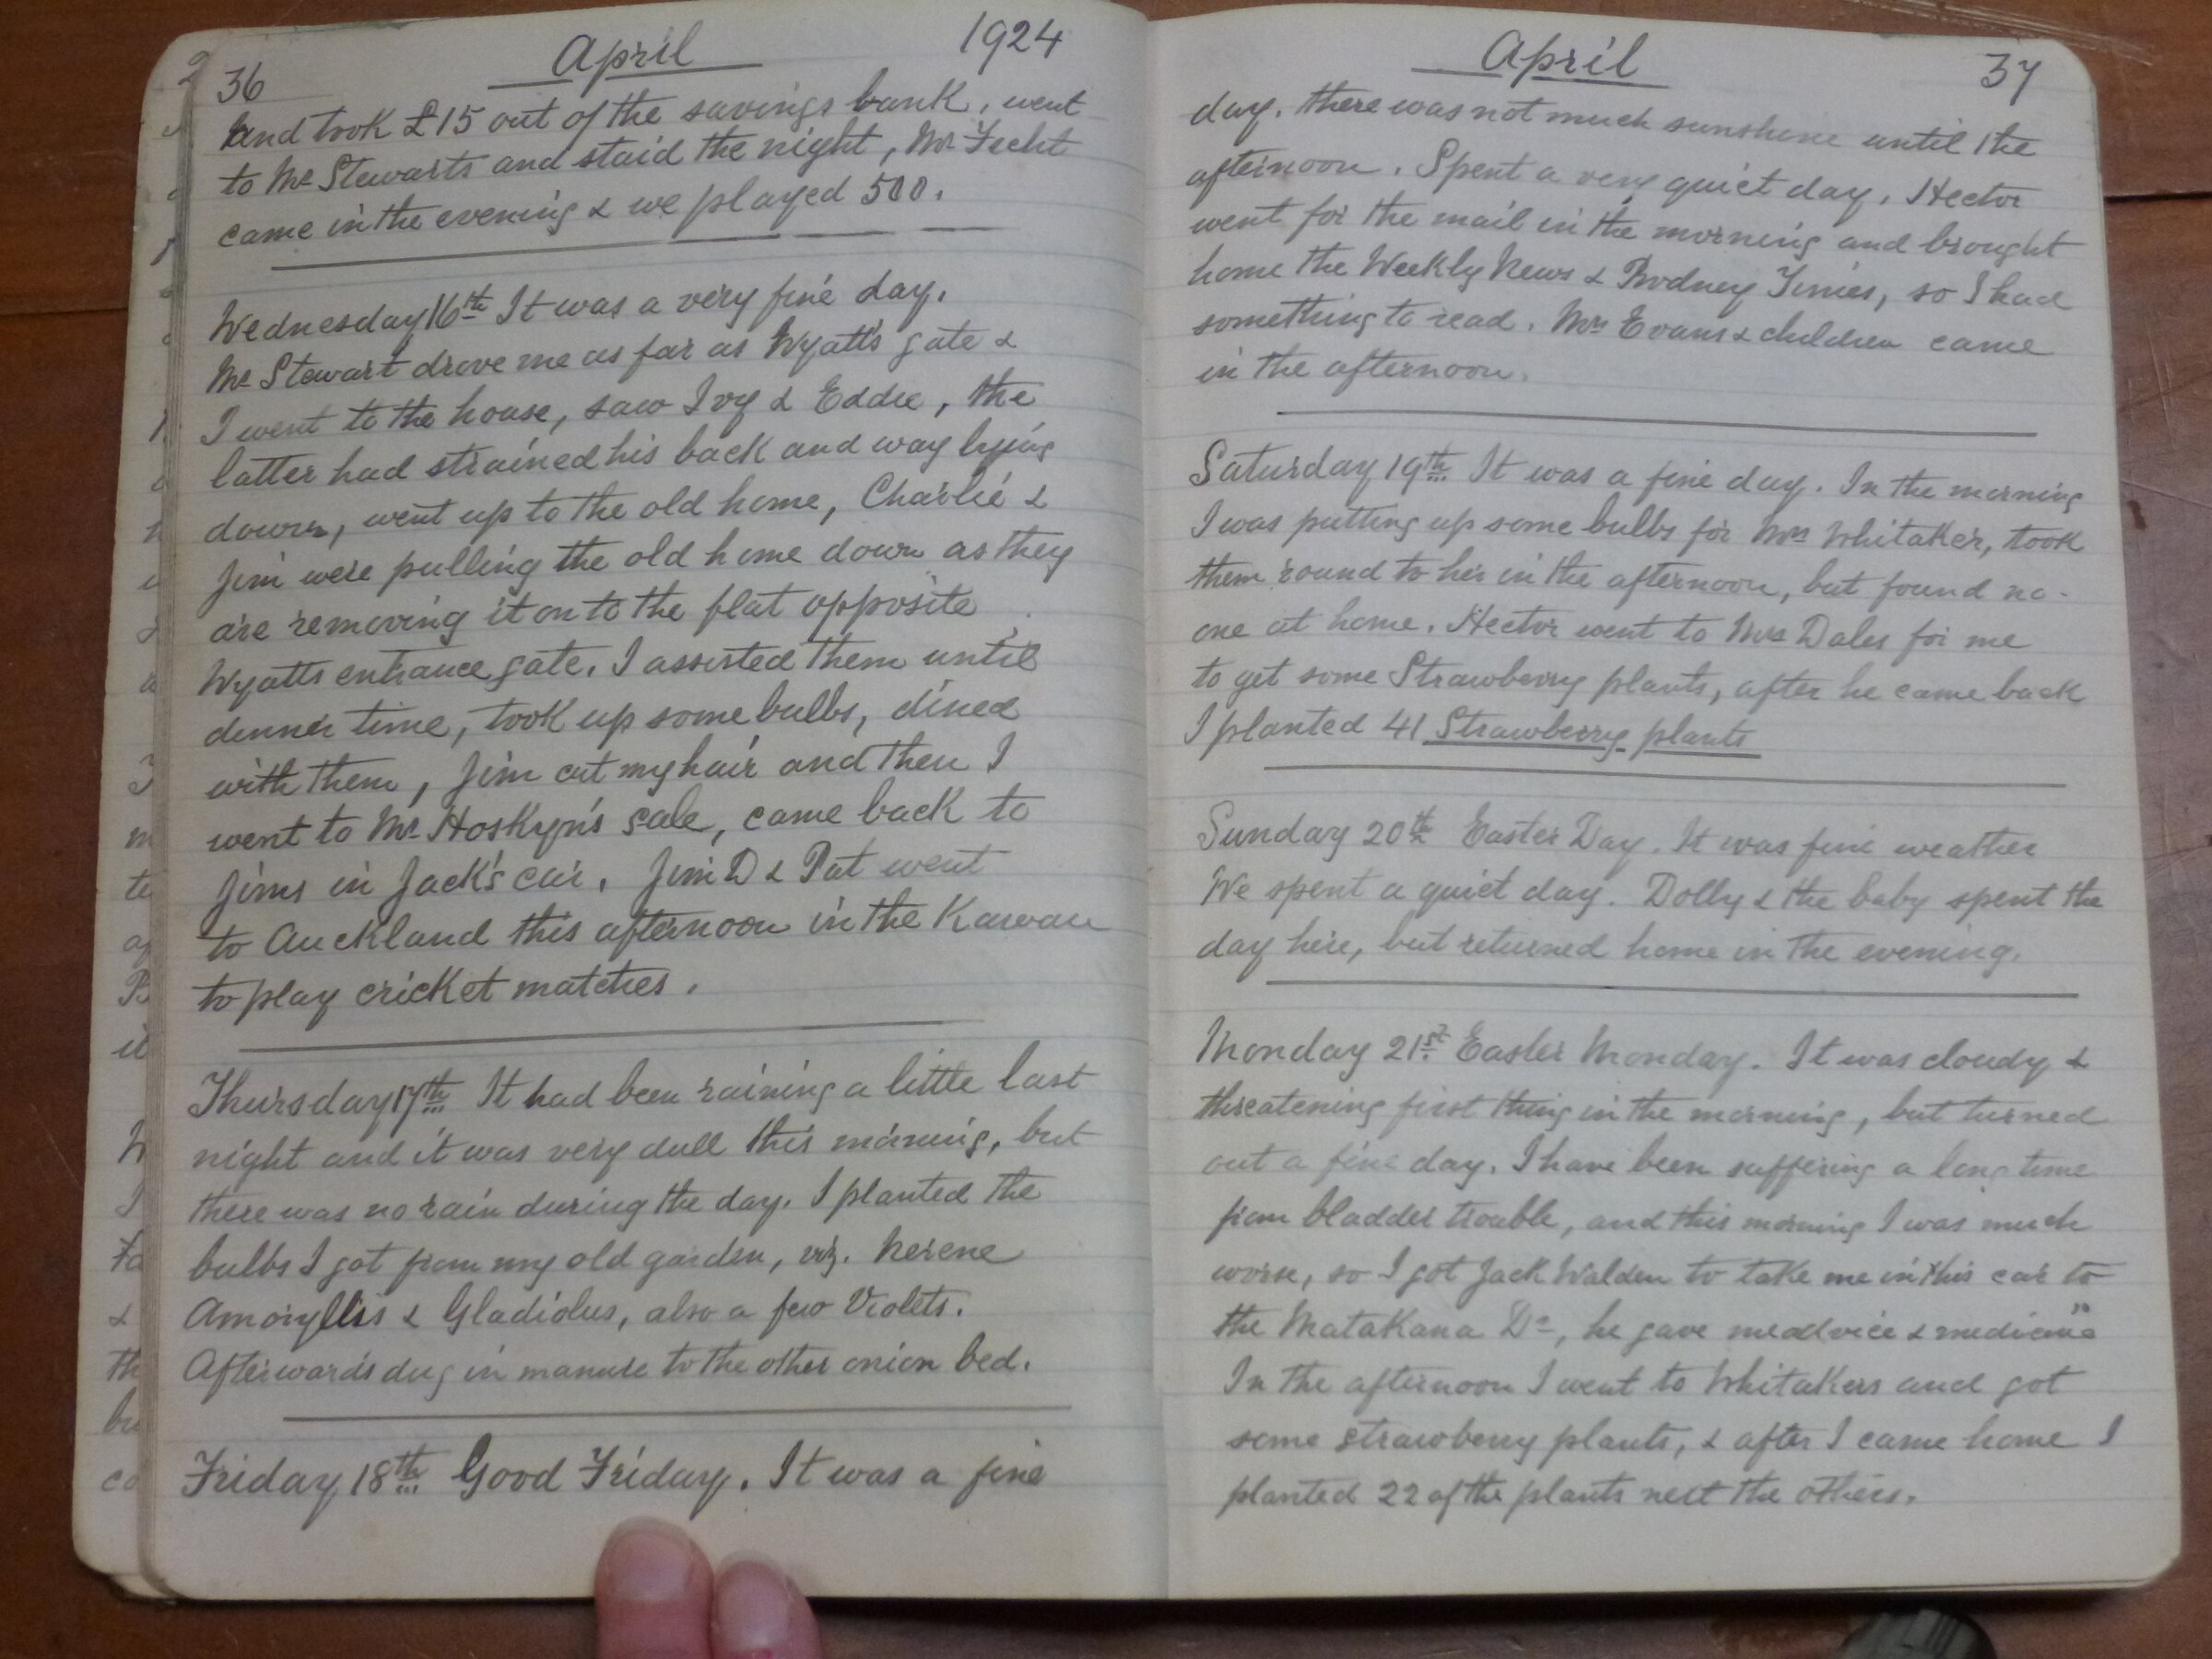 36 April 1924
and took £15 out of the savings bank, went
to Mr Stewarts and staid the night, Mr Fecht
came in the evening & we played 500.
Wednesday 16th It was a very fine day.
Mr Stewart drove me as far as Wyatt's gate &
I went to the house, saw Ivy & Eddie, the
latter had strained his back and way lying
down, went up to the old home, Charlie &
Jim were pulling the old home down as they
are removing it on to the flat opposite
Wyatts entrance gate. I assisted them until
dinner time, took up some bulbs, dined
with them, Jim cut my hair and then I
went to Mr Hoskyn's sale, came back to
Jims in Jack's car. Jim D & Pat went
to Auckland this afternoon in the Kawau
to play cricket matches.
Thursday 17th It had been raining a little last
night and it was very dull this morning, but
there was no rain during the day. I planted the
bulbs I got from my old garden, viz. Nerene
Amoryllis & Gladiolus, also a few Violets.
Afterwards dug in manure to the other onion bed.
Friday 18th Good Friday. It was a fine
April 37
day. there was not much sunshine until the
afternoon. Spent a very quiet day. Hector
went for the mail in the morning and brought
home the Weekly News & Rodney Times, so I had
something to read. Mrs Evans & children came
in the afternoon.
Saturday 19th It was a fine day. In the morning
I was putting up some bulbs for Mrs Whitaker, took
them round to her in the afternoon, but found no-
one at home. Hector went to Mrs Dales for me
to get some Strawberry plants, after he came back
I planted 41 Strawberry plants
Sunday 20th Easter Day. It was fine weather
We spent a quiet day. Dolly & the baby spent the
day here, but returned home in the evening.
Monday 21st Easter Monday. It was cloudy &
threatening first thing in the morning, but turned
out a fine day. I have been suffering a long time
from bladder trouble, and this morning I was much
worse, so I got Jack Walden to take me in his car to
the Matakana Dr, he gave me advice & medicine
In the afternoon I went to Whitakers and got
some strawberry plants, & after I came home I
planted 22 of the plants next the others.